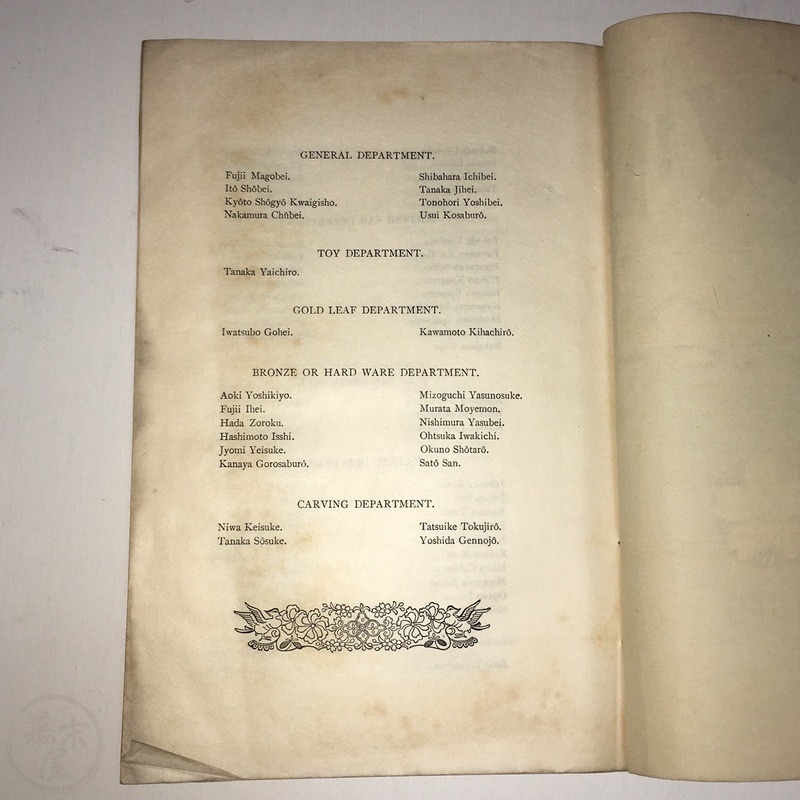 GENERAL DEPARTMENT.
Fujii Magobei.
Itō Shōbei.
Kyōto Shōgyō Kwaigisho.
Nakamura Chūbei.
Shibahara Ichibei.
Tanaka Jihei.
Tonohori Yoshibei.
Usui Kosaburō.
TOY DEPARTMENT.
Tanaka Yaichiro.
GOLD LEAF DEPARTMENT.
Iwatsubo Gohei.
Kawamoto Kihachirō.
BRONZE OR HARD WARE DEPARTMENT.
Aoki Yoshikiyo.
Fujii Ihei.
Hada Zoroku.
Hashimoto Isshi.
Jyomi Yeisuke.
Kanaya Gorosaburō.
Mizoguchi Yasunosuke.
Murata Moyemon.
Nishimura Yasubei.
Ohtsuka Iwakichi.
Okuno Shōtarō.
Satō San.
CARVING DEPARTMENT.
Niwa Keisuke.
Tanaka Sōsuke.
Tatsuike Tokujirō.
Yoshida Gennojō.